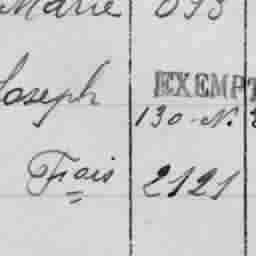 Marie 093
Joseph EXEMPT
130-N.
Frois 2121